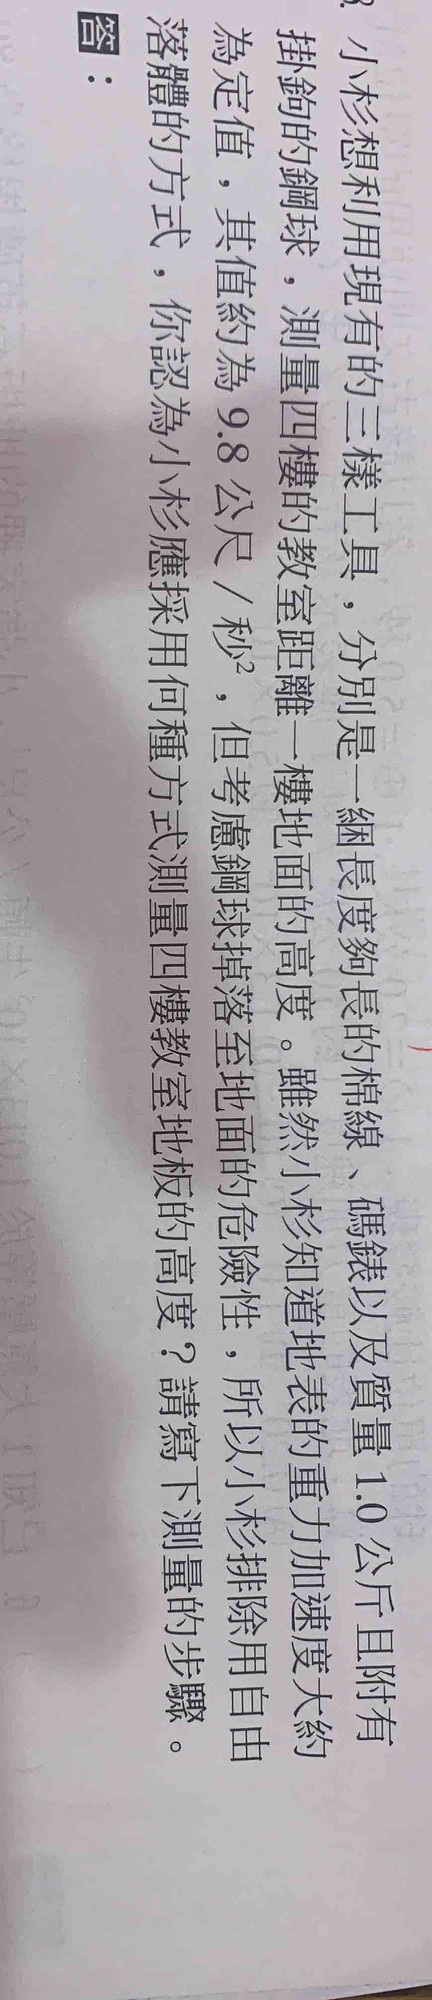 小杉想利用現有的三樣工具，分別是一綑長度夠長的棉線、碼錶以及質量 1.0 公斤且附有
掛鉤的鋼球，測量四樓的教室距離一樓地面的高度。雖然小杉知道地表的重力加速度大約
為定值，其值約為 9.8 公尺／秒²，但考慮鋼球掉落至地面的危險性，所以小杉排除用自由
落體的方式，你認為小杉應採用何種方式測量四樓教室地板的高度？請寫下測量的步驟。
答：